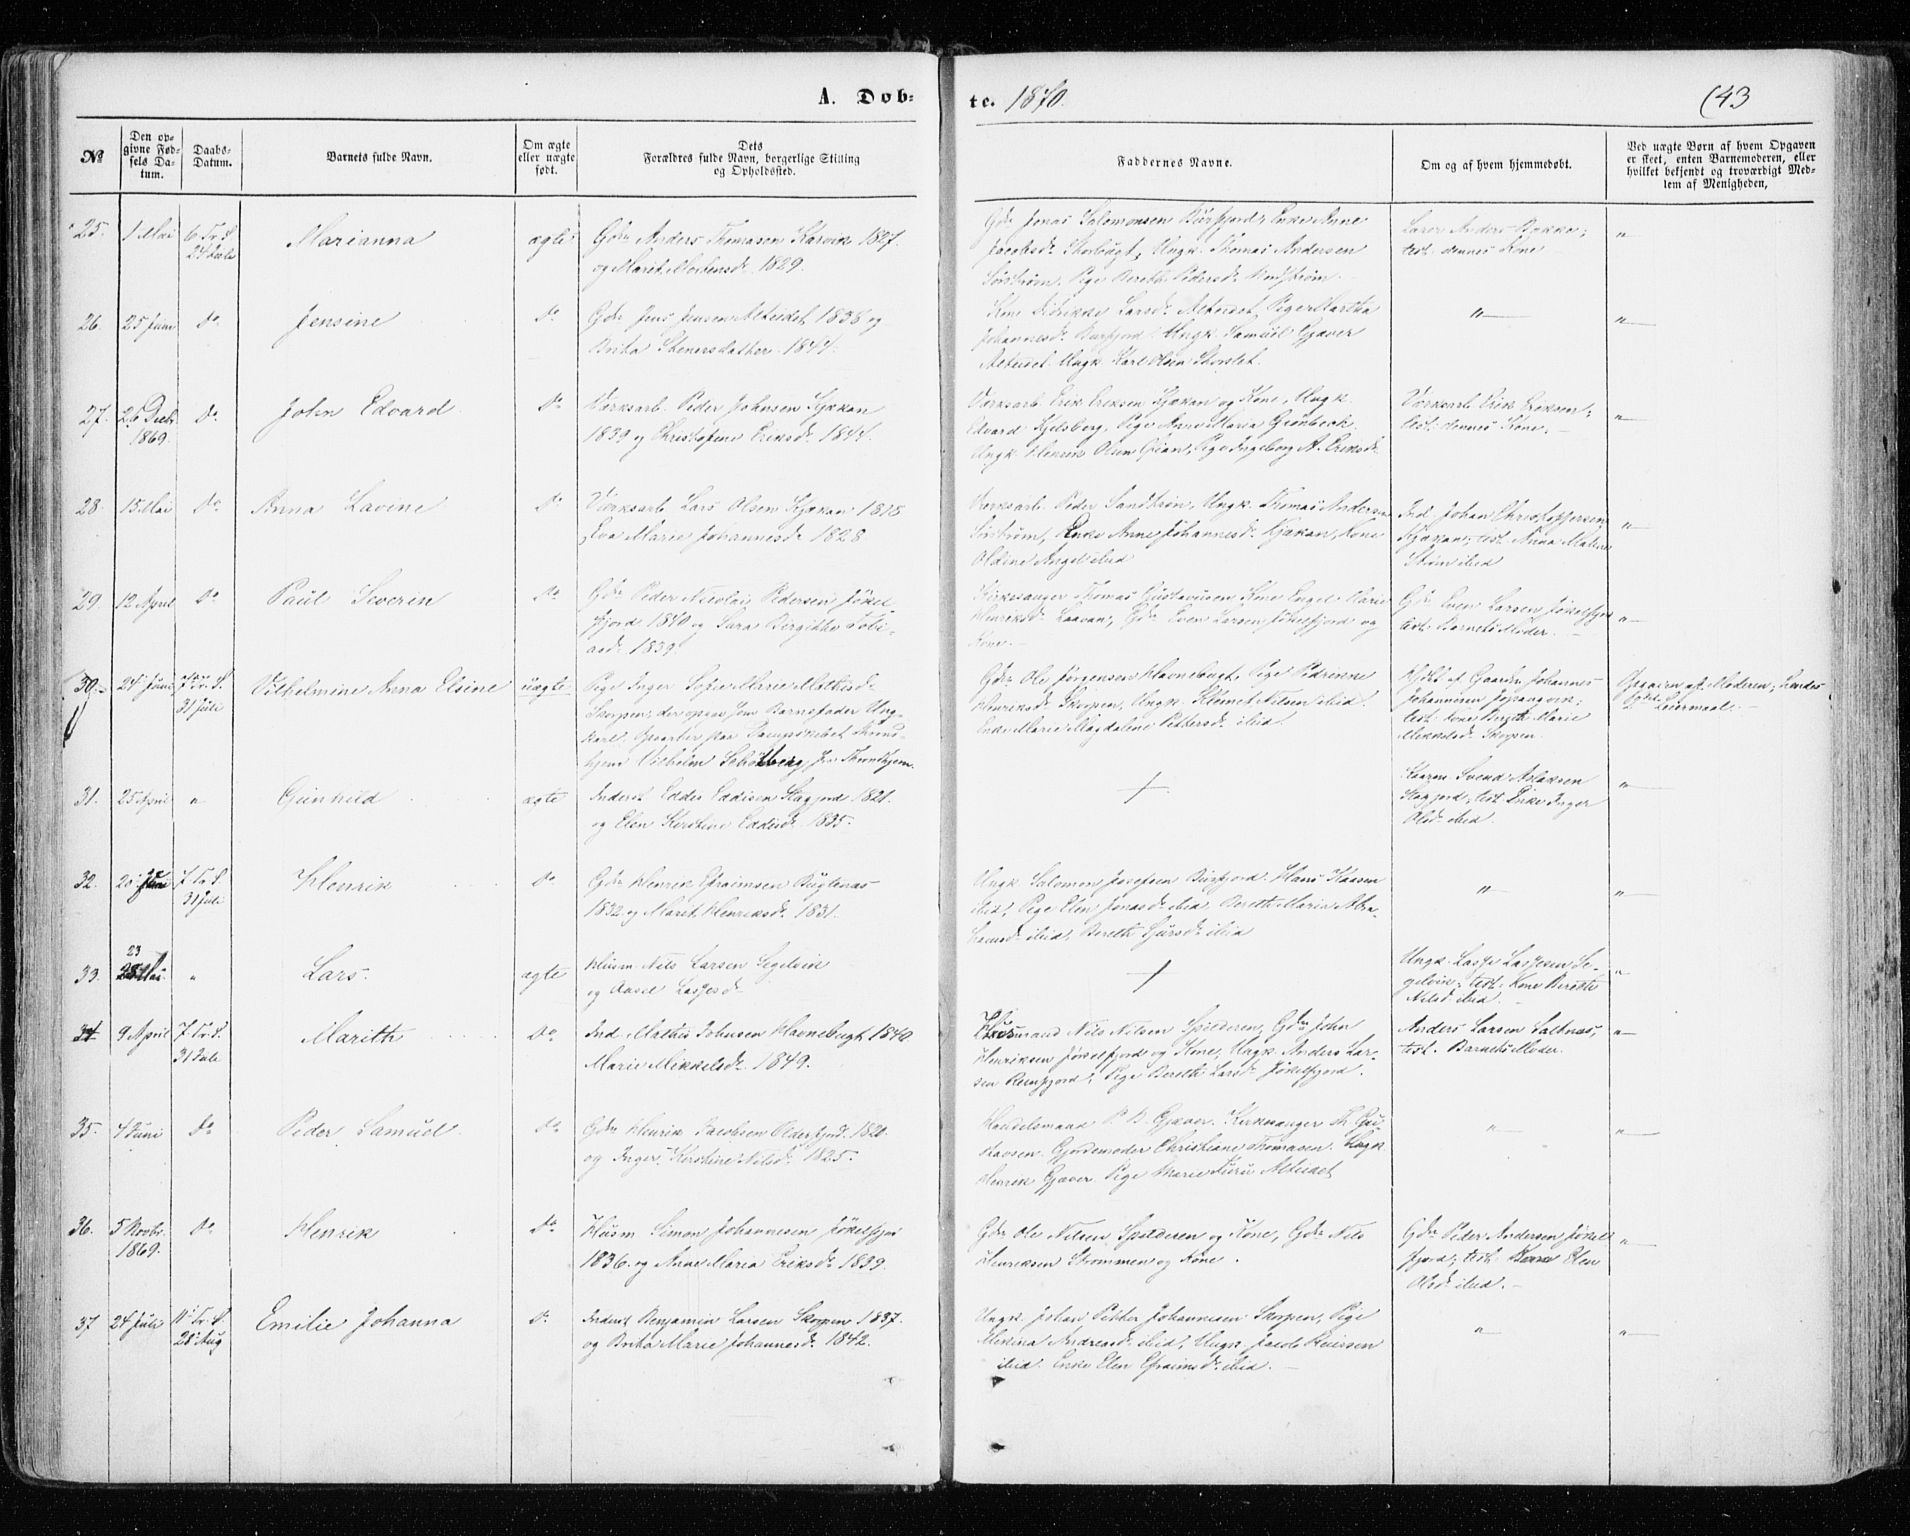 A. Døb-
te. 1870.
(43
No
Den op-
givne Fød-
sels Da-
tum.
Daabs-
Datum.
Barnets fulde Navn.
Om ægte
eller uægte
født.
Dets
Forældres fulde Navn, borgerlige Stilling
og Opholdssted.
Faddernes Navne.
Om og af hvem hjemmedøbt.
Ved uægte Børn af hvem Opgaven
er skeet, enten Barnemoderen, eller
hvilket bekjendt og troværdigt Med-
lem af Menigheden,
25. 1 Mai 6 Tr. S. Marianna ægte Gdr Anders Thomasen Karvik 1827
24 Juli og Marit Mortensd. 1829.
Gdr Jonas Salomonsen Burfjord, Enke Anne
Jacobsd. Skorbugt, Ungk. Thomas Andersen
Sørstrøm, Pige Berethe Pedersd.
Lærer Anders Bakke;
test. dennes Kone
26. 25 Juni Do Jensine Do Gdr Jens Jensen Alteidet 1836 og
Brita Stenersdatter 1844.
Kone Didrikke Larsd. Alteidet, Pige Martha
Johannesd. Burfjord. Ungk. Samuel Gjæver
Alteidet. Ungk. Karl Olsen Storslet.
27. 26 Decbr. Do John Edvard Do Værksarb. Peder Johnsen Kjækan
1869. 1839 og Christofine Eriksd. 1844.
Værksarb. Erik Eriksen Kjækan og Kone, Ungk.
Edvard Kjelsberg, Pige Anne Maria Grønbech.
Ungk. Henrik Olsen Qvian, Pige Ingeborg A. Eriksd.
Værksarb. Erik Eriksen;
test: dennes Kone.
28. 15 Mai Do Anna Lavine Do Værksarb. Lars Olsen Kjækan 1818
Eva Marie Johannesd. 1828.
Værksarb. Peder Sandstrøm, Ungk. Thomas Andersen
Sørstrøm, Enke Anne Johannesd. Kjækan, Kone
Oldine Angel ibid
Ind. Johan Christophersen
Kjækan; test. Anna Malene
Strøm ibid
29. 12 April Do Paul Severin Do Gdr Peder Nicolai Pedersen Jøkel-
fjord 1840 og Sara Bergithe Tobi-
asd. 1839.
Kirkesanger Thomas Gustavusen Kone Engel Marie
Henriksd. Laavan, Gdr Even Larsen Jøkelfjord og
Kone.
Gdr Even Larsen Jøkelfjord
test. Barnets Moder.
30. 24 Juni 7 Tr. S. Vilhelmine Anna Elsine uægte Pige Inger Sofie Marie Mathisd.
31 Juli Skorpen; der opgav som Barnefader Ung-
karl Qvarter paa Dampskibet Thrond-
hjem Vilhelm Scholberg fra Throndhjem.
Gdr Ole Jørgensen Havnebugt, Pige Pedrinne
Henriksd. Skorpen, Ungk. Klemet Nilsen ibid.
Enke Marie Magdalene Pettersd. ibid.
Hjdbt. af Gaardm. Johannes
Johannesen
test: Kone Marie
Mikkelsd. Skorpen.
Opgaven af Moderen; hendes
Leiermaal.
31. 25 April " Gunhild ægte Inderst Eddis Eddisen Stagfjord 1821.
og Elen Kerstine Eddisd. 1835.
Svend Aslaksen
test. Enke Inger
Olsd. ibid.
32. 20 7 Tr. S. Henrik Do Gdr Henrik Efraimsen Bugtenæs
31 Juli 1832 og Marit Henriksd. 1831.
Ungk. Salomon Josefsen Burfjord. Hans
ibid, Pige Elen Jonasd. ibid. Berethe Maria Abra-
hamsd. ibid, Bereth Sjursd. ibid
33. 23
Mai. " Lars. ægte Husm. Nils Larsen Segelvik
og Aasel Lassesd.
Ungk. Lasse Lassesen Se-
gelvik; test. Kone Berethe
Nilsd. ibid.
34 9 April 7 Tr. S. Marith Do Ind. Mathis Johnsen Havnebugt 1840
31 Juli Marie Mikkelsd. 1849.
Husmand Nils Nilsen Spilderen, Gdr John
Henriksen Jøkelfjord og Kone, Ungk. Anders Lar-
sen Reinfjord, Pige Bereth Larsd. Jøkelfjord.
Anders Larsen Saltnæs,
test. Barnets Moder.
35. 4 Juni Do Peder Samuel Do Gdr Henrik Jacobsen Olderfjord 1820.
og Inger Kerstine Nilsd. 1825.
Handelsmand P. B. Gjæver. Kirkesanger Th. Gu-
stavsen. Gjordemoder Christiane Thomasen. Ungk.
Henrik Gjæver. Pige Marie Furu Alteidet
36. 5 Novbr. Do Henrik Do Husm. Simon Johannesen Jøkelfjord
1869. 1836. og Anne Maria Eriksd. 1839.
Gdr Ole Nilsen Spilderen og Kone, Gdr Nils
Henriksen Strømmen og Kone.
Gdr Peder Andersen Jøkel-
fjord; test. Kone Elen
Olsd. ibid.
37 24 Juli 11 Tr. S. Emilie Johanna Do Inderst Benjamin Larsen Skorpen 1837.
28 Aug og Brita Marie Johannesd. 1842.
Ungk. Johan Petter Johannesen Skorpen, Pige
Andreasd. ibid, Ungk. Jacob
ibid. Enke Elen Efraimsd. ibid.